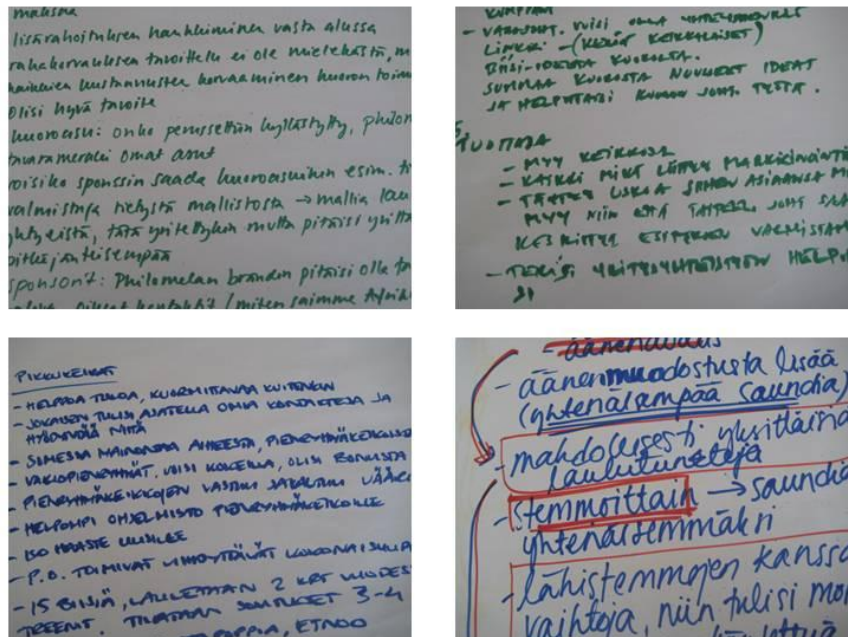 maksua
lisärahoituksen hankkiminen vasta alussa
rahakorvauksen tavoittelu ei ole mielekästä, m
kustannusten korvaaminen kuoron toim
olisi hyvä tavoite
kuoroasu: onko perussettiin kyllästytty, philom
omat asut
voisiko sponssin saada kuoroasuihin esim. ti
valmistaja tietystä mallistosta → mallia lau
yhtyeistä, tätä yritettykin mutta pitäisi yrittä
pitkäjänteisempää
sponsorit: Philomelan brandin pitäisi olla
oikeat kontaktit (miten saimme Afrik
KUMPPANI
- VARAJOHT. VOISI OLLA YHTEYSHENKILÖ
LINKKI - (KERÄÄ KEIKKALAISET)
BIISI-IDEOITA KUOROLTA.
SUMMAA KUOROSTA NOUSSEET IDEAT
JA HELPOTTAISI KUORON JOHT. TYÖTÄ.
TUOTTAJA
- MYY KEIKKOJA
- KAIKKI MIKÄ LIITTYY MARKKINOINTII
- TÄYTYY USKOA SIIHEN ASIAANSA
MYY NIIN ETTÄ TAITEEL. JOHT SAA
KESKITTYÄ ESITYKSEN VALMISTAM
- TEKISI YRITYSYHTEISTYÖN HELPO
SI
PIKKUKEIKAT
- HELPPOA TULOA, KUORMITTAVAA KUITENKIN
- JOKAISEN TULISI AJATELLA OMIA KONTAKTEJA JA
HYÖDYNTÄÄ NIITÄ
- SOMESSA MAINONTAA AIHEESTA, PIENRYHMÄKEIKOISTA
- VAKIOPIENRYHMÄT, VOISI KOKEILLA, OLISI BONUSTA
- PIENRYHMÄKEIKKOJEN VASTUU JAKAUTUU VÄÄRI
- HELPOMPI OHJELMISTO PIENRYHMÄKEIKOILLE
- ISO HAASTE UUSILLE
- P.O. TOIMIVAT VIIHDYTTÄVÄT KOKONAISUU
- 15 BIISIÄ, LAULETAAN 2 KRT VUODES
TREENIT. TILATAAN SOVITUKSET 3-4
POPPIA, ETNOO
- äänenavaus
- äänenmuodostusta lisää
(yhtenäisempää saundia)
- mahdollisesti yksittäisiä
laulutunteja
- stemmoittain → saundia
yhtenäisemmäksi
- lähistemmojen kanssa
vaihtoja, niin tulisi mon